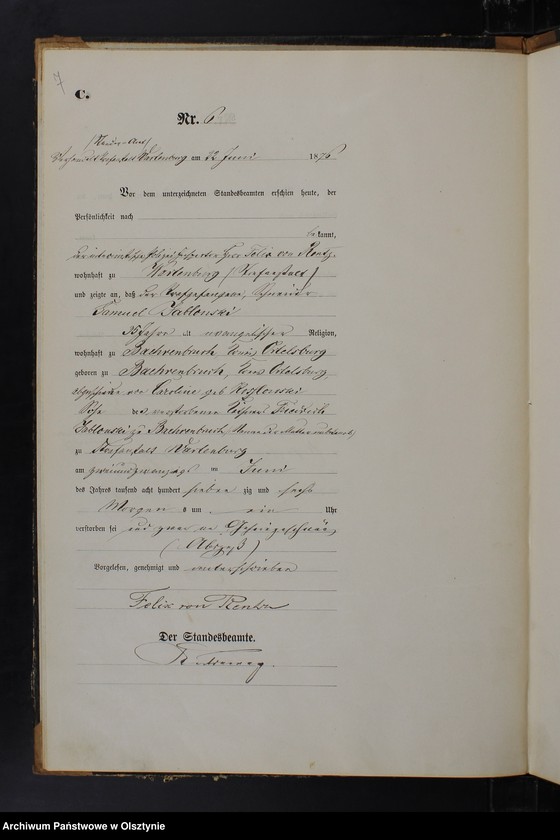 7
C.
Nr. 6
Wartenburg am 22 Juni 1876
Vor dem unterzeichneten Standesbeamten erschien heute, der
Persönlichkeit nach
bekannt,
Felix von Rentz
wohnhaft zu Wartenburg
und zeigte an, daß der Strafgefangene, Schneider
Samuel Jablonski
35 Jahre alt evangelischer Religion,
wohnhaft zu Baehrenbruch, Kreis Ortelsburg
geboren zu Baehrenbruch, Kreis Ortelsburg,
von Caroline geb
Sohn des verstorbenen Friedrich
Jablonski zu Baehrenbruch
zu Strafanstalt Wartenburg
am zweiundzwanzigsten Juni
des Jahres tausend acht hundert sieben zig und sechs
Morgens um ein Uhr
verstorben sei und zwar an
(Abszeß)
Vorgelesen, genehmigt und unterschrieben
Felix von Rentz
Der Standesbeamte.
Archiwum Państwowe w Olsztynie